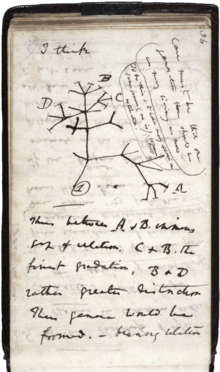 36
I think
Case must be that one
generation then should be
as many living as now
To do this & to have
many species in
same genus (as is)
requires extinction
B
D
C
A
1
Thus between A & B. immense
gap of relation. C & B. the
finest gradation, B & D
rather greater distinction
Thus genera would be
formed. — bearing relation